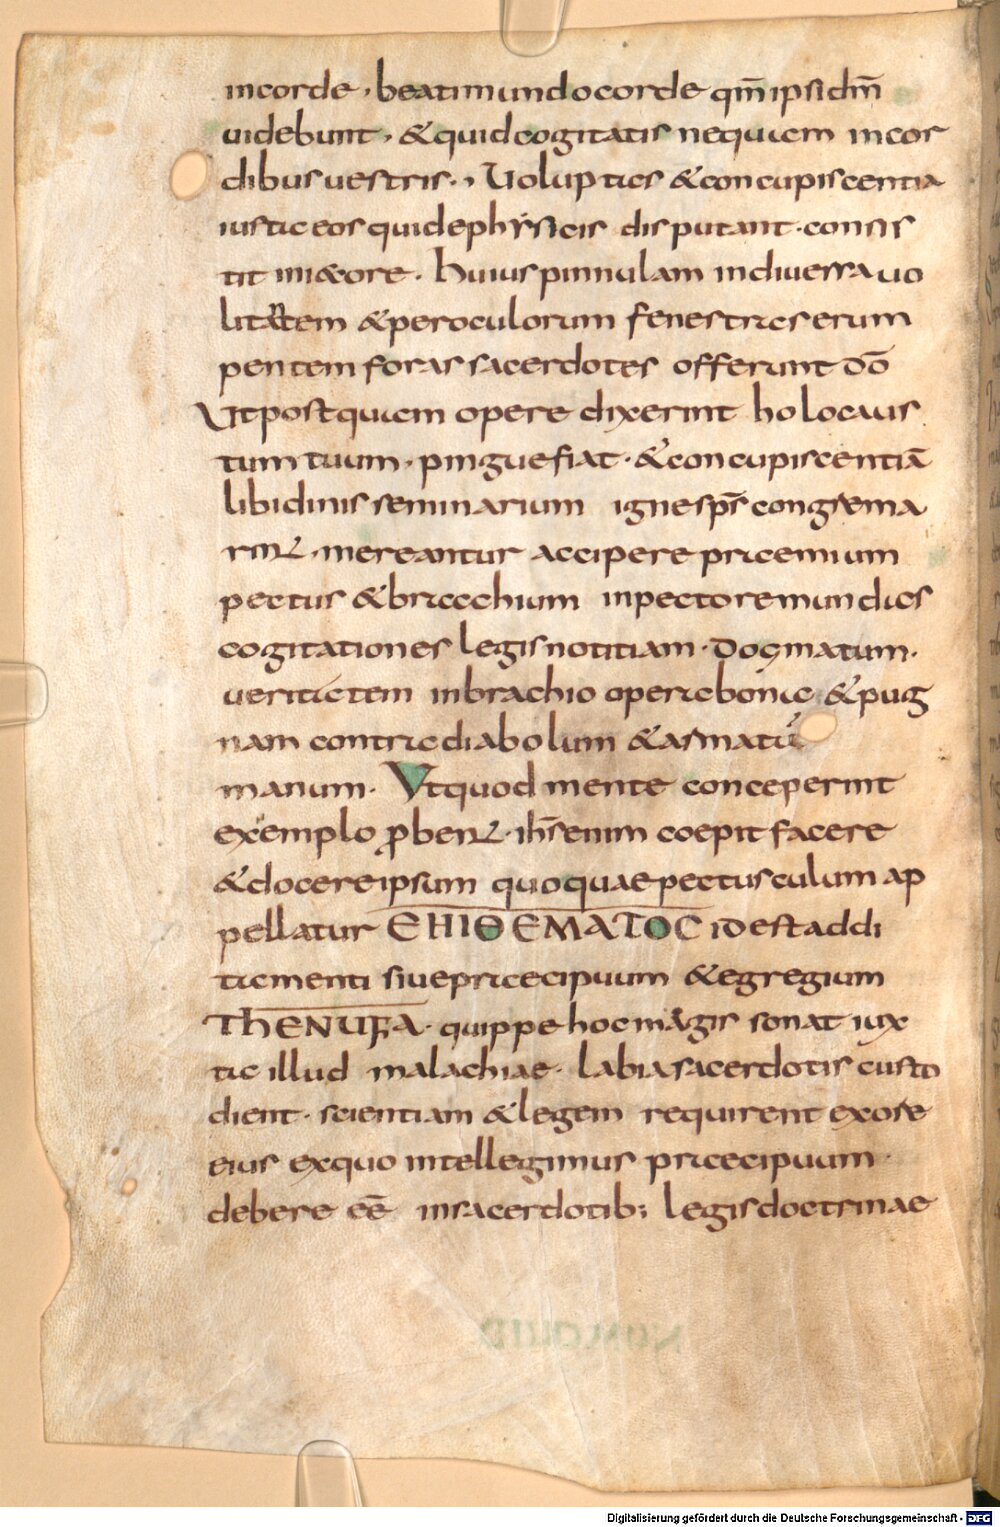 incorde, beatimundocorde qm̄ ipsidm̄
uidebunt, &quidcogitatis nequam incor
dibusuestris., Uoluptas &concupiscentia
iuxta eosquidephysicis disputant. consis
tit iniecore. huiuspinnulam indiuersauo
litantem &peroculorum fenestraserum
pentem forassacerdotes offerunt dō
Utpostquam opere dixerint holocaus
tum tuum. pinguefiat. &concupiscentiā
libidinis seminarium ignesps̄ congrema
rint. mereantur accipere praemium
pectus &bracchium inpectoremundas
cogitationes legisnotitiam. dogmatum.
ueritatem inbrachio operabona &pug
nam contradiabolum &armatū
manum. Utquod mente conceperint
exemplo p̱bent. ihs̄enim coepit facere
&docereipsum quoquaepectusculum ap
pellatur ЄΗΙΘЄΜΑΤΟC idestaddi
tamenti siuepraecipuum &egregium
ThENUFA. quippehocmagis sonat iux
ta illud malachiae. labiasacerdotis custo
dient. scientiam &legem requirent exore
eius exquo intellegimus praecipuum.
debere eē insacerdotib; legisdoctrinae
NUMQUID
Digitalisierung gefördert durch die Deutsche Forschungsgemeinschaft - DFG